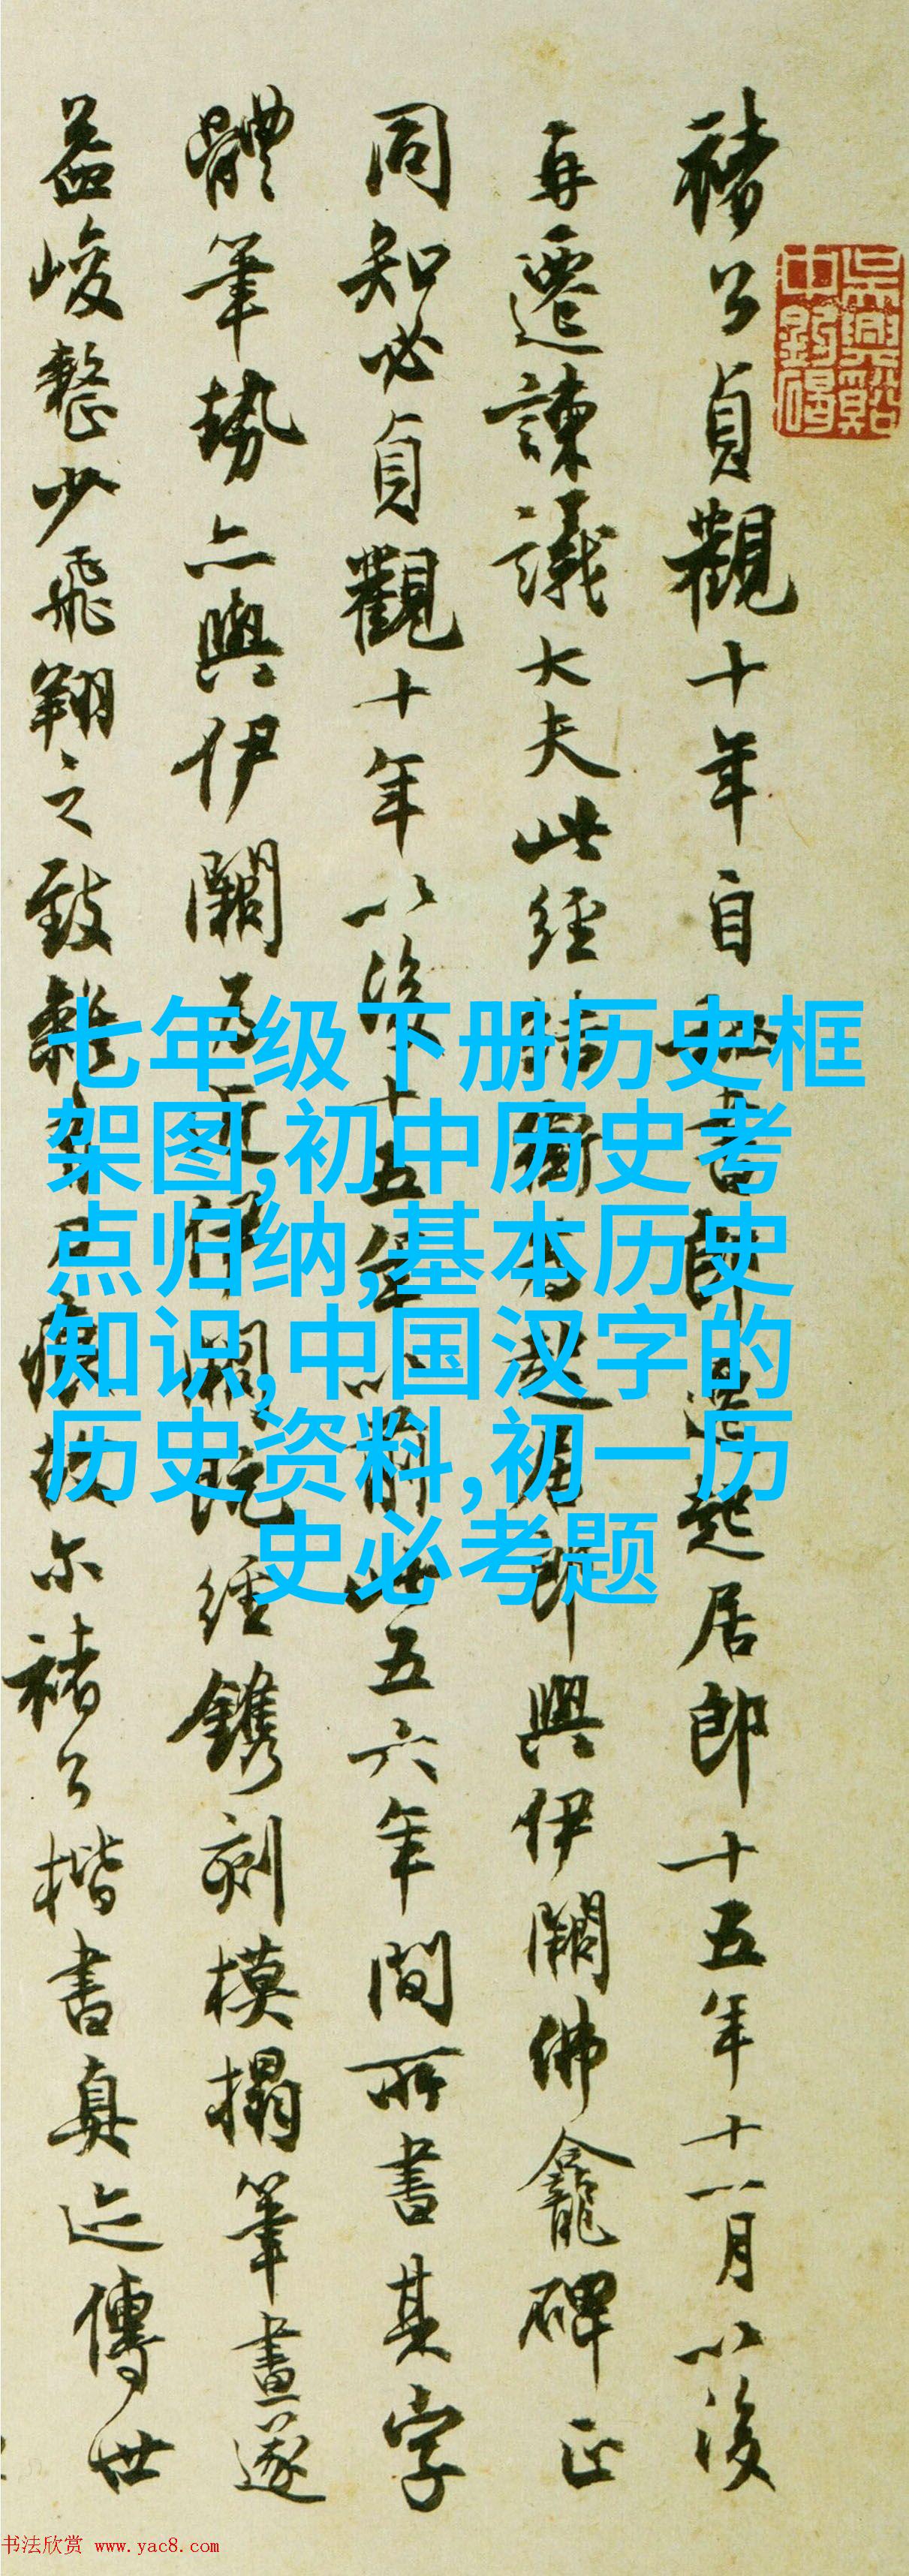 褚公貞觀十年自秘書郎遷起居郎十五年十一月以後
再遷諫議大夫此經結銜爲起居郎與伊闕佛龕碑正
同知必貞觀十年以後十五年以前此五六年間所書其字
體筆勢亦與伊闕爲近伊闕既經鐫刻模搨筆畫遂
益峻整少飛翔之致痕故尔褚公楷書真迹傳世
七年级下册历史框
架图,初中历史考
点归纳,基本历史
知识,中国汉字的
历史资料,初一历
史必考题
书法欣赏 www.yac8.com